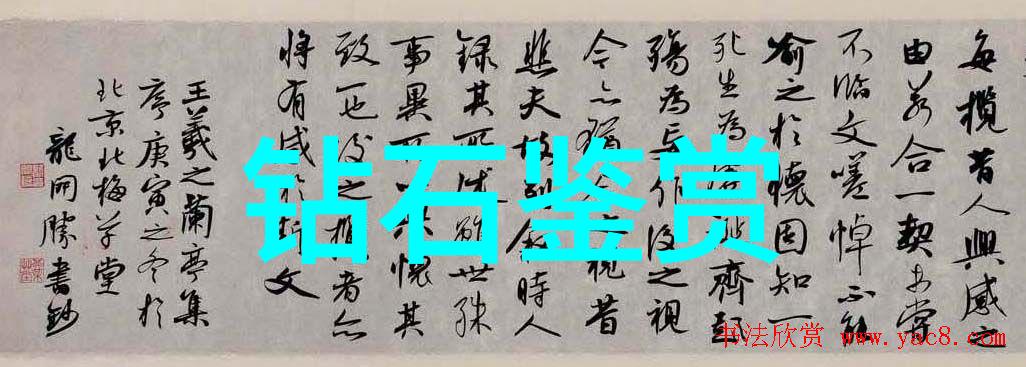 每攬昔人興感之
由若合一契未嘗
不臨文嗟悼不能
喻之於懷固知一
死生為虛誕齊彭
殤為妄作後之視
今亦猶今之視昔
悲夫故列敘時人
錄其所述雖世殊
事異所以興懷其
致一也後之攬者亦
將有感於斯文
王羲之蘭亭集
序庚寅之冬於
北京北梅草堂
龍開勝書鈔
钻石鉴赏
书法欣赏 www.yac8.com